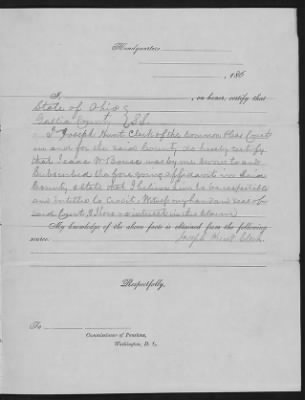 Headquarters
, 186
I, , on honor, certify that
State of Ohio
Gallia County } SS
I Joseph Hunt Clerk of the Common Pleas Court
in and for the said County do hereby certify
that Isaac W was by me sworn to and
Subscribed the foregoing affidavit in said
County & state that I believe him to be respectable
and intitled to Credit. Witness my hand and seal of
said Court & I have no interest in this claim
My knowledge of the above facts is obtained from the following
source. Joseph Hunt Clerk
Respectfully,
To
Commissioner of Pensions,
Washington, D. C.